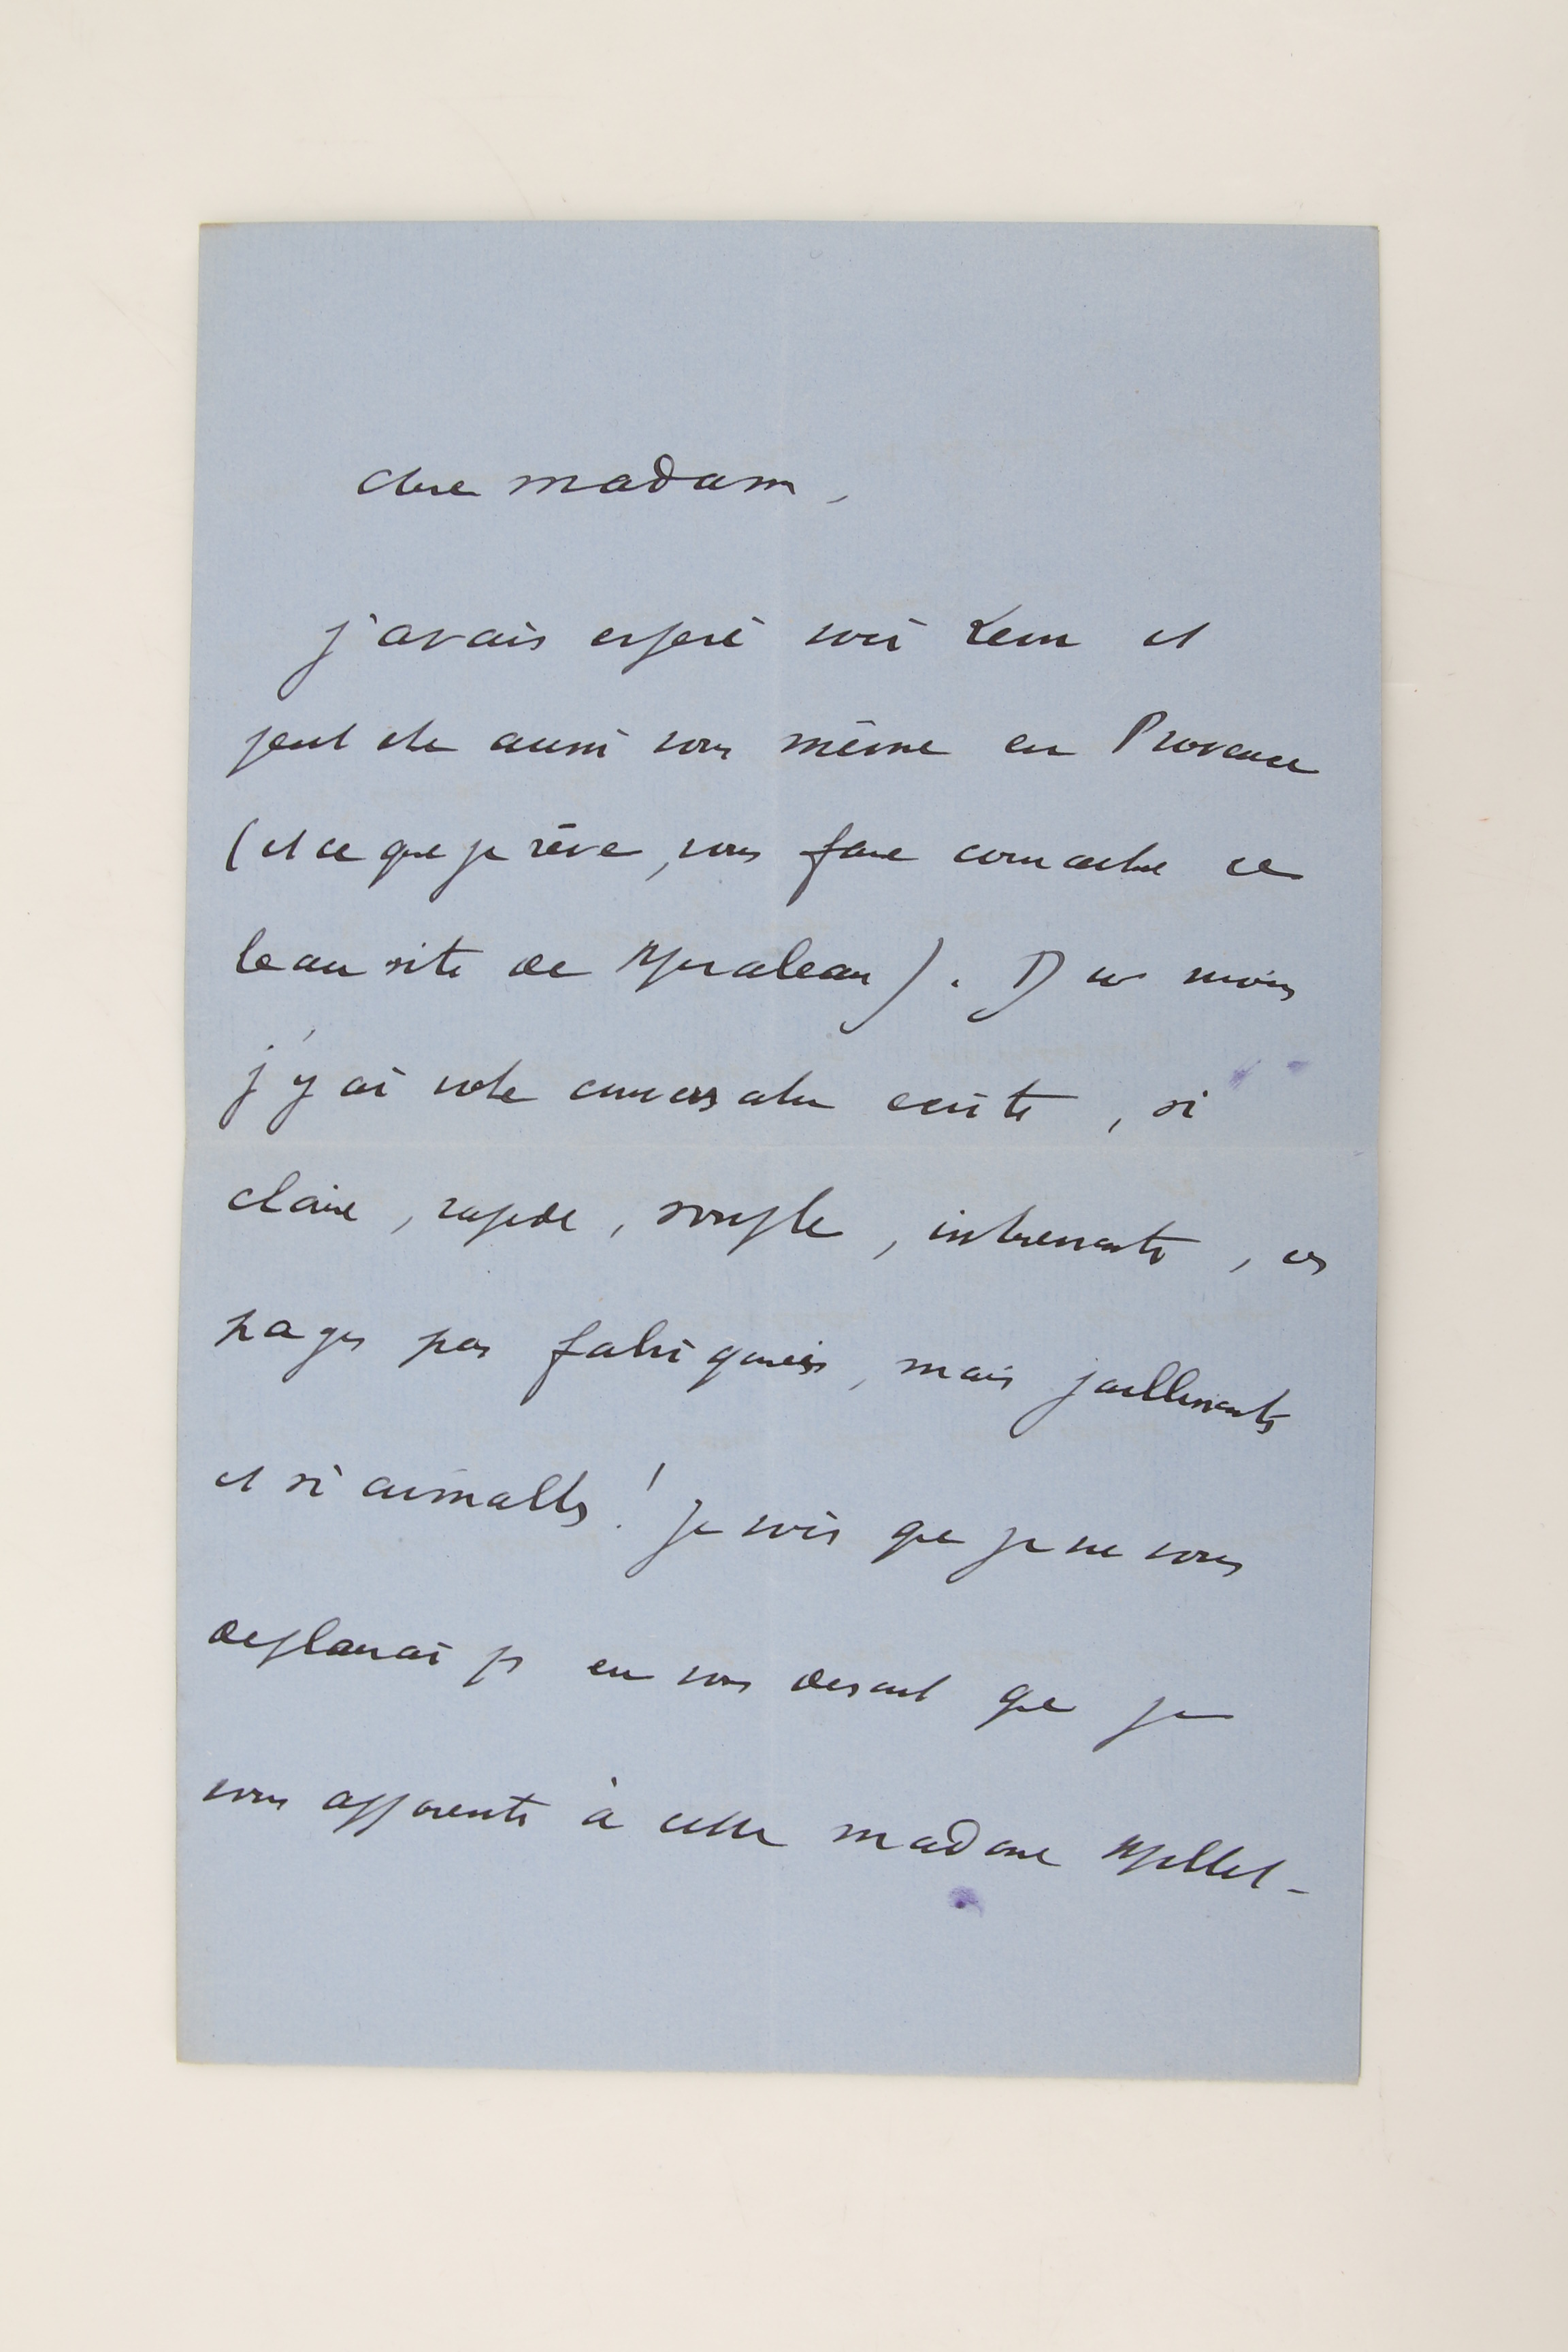 chere madame,
j'avais esperé voir Leon et
peut etre aussi vous même en Provence
(et ce que je rêve, vous faire connaitre ce
beau site de Mirabeau). Du moins
j'y ai votre conversation ecrite, si
claire, rapide, souple, interessante, ces
pages pas fabriquées, mais jaillissants
et si aimables! Je vois que je ne vous
deplairai ps en vous disant que je
vous apparente à cette madame Millet-